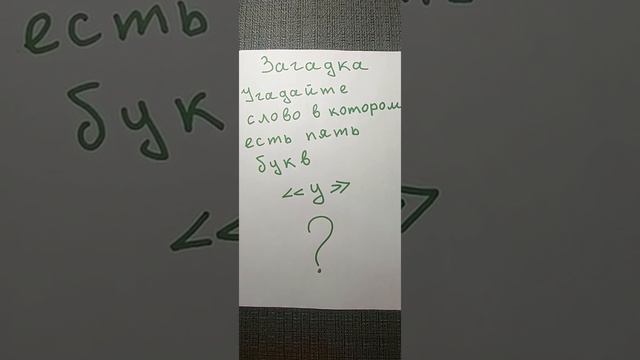 Загадка
Угадайте
слово в котором
есть пять
букв
<<у>>
?